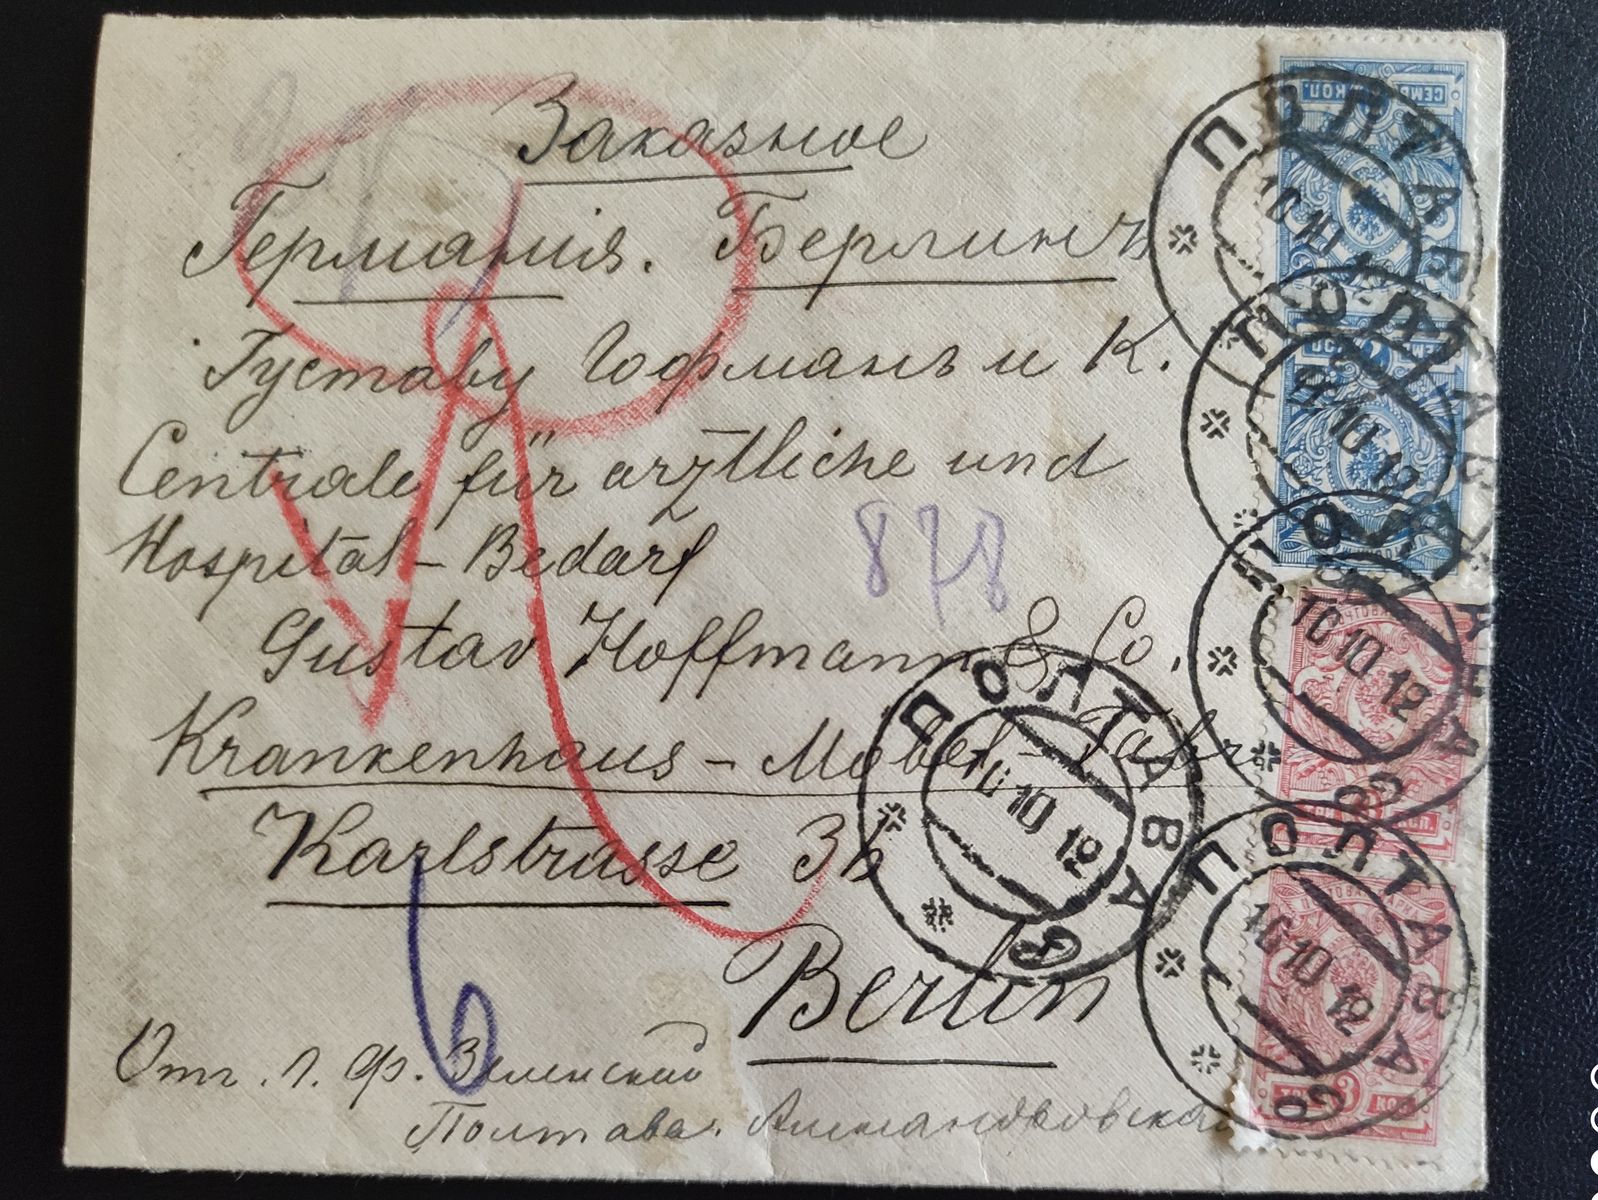 Заказное
Германія. Берлинъ
Густаву Гофманъ и К.
Centrale für arztliche und
Hospital-Bedarf
878
Gustav Hoffmann & Co.
Krankenhaus-Mobel-Fabr
Karlstrasse
Berlin
6
Отг. Л. Ф. Зеленской
Полтава.
СЕМЬ КОП.
ПОЛТАВА
10 10 12
ПОЛТАВА
10 10 12
ПОЛТАВА
10 10 12
ПОЛТАВА
10 10 12
ПОЛТАВА
10 10 12